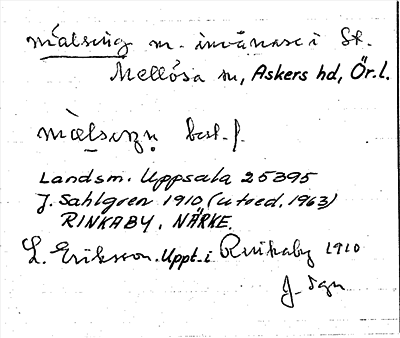 mälsing m. invånare i St.
Mellösa sn, Askers hd, Ör.l.
best. f.
Landsm. Uppsala 25395
J. Sahlgren 1910, (utred. 1963)
RINKABY, NÄRKE.
L. Eriksson. Uppt. i Rinkaby 1910
J. Sgn